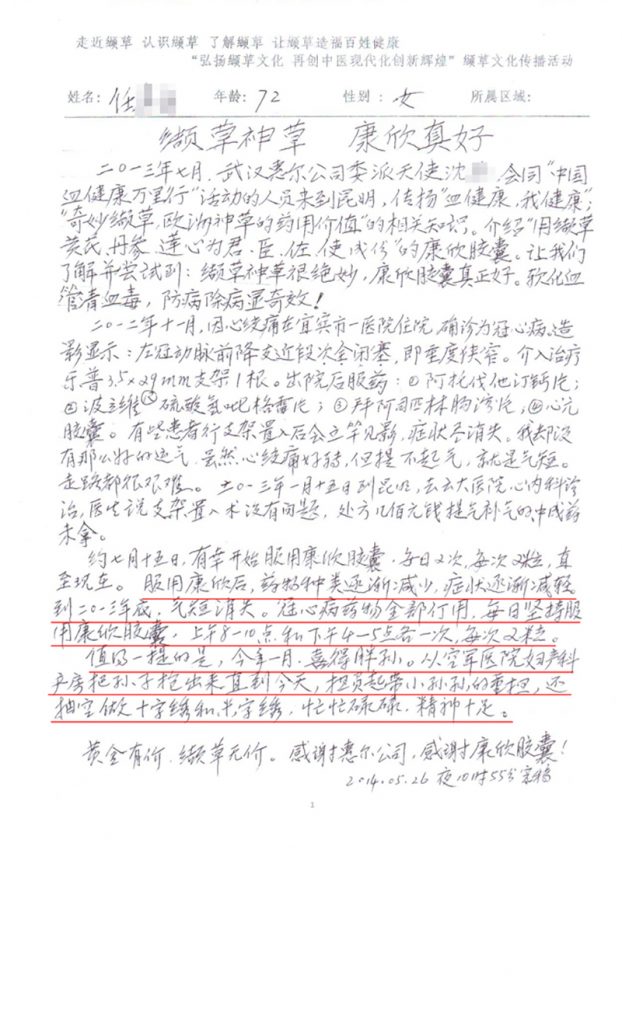 走近缬草 认识缬草 了解缬草 让缬草造福百姓健康
"弘扬缬草文化 再创中医现代化创新辉煌" 缬草文化传播活动
姓名：任 年龄：72 性别：女 所属区域：
缬草神草 康欣真好
二〇一三年七月，武汉惠尔公司委派天使沈 会同"中国
血健康万里行"活动的人员来到昆明，传扬"血健康，我健康"；
"奇妙缬草，欧洲神草的药用价值"的相关知识。介绍"用缬草
黄芪、丹参、莲心为君、臣、佐、使成份"的康欣胶囊。让我们
了解并尝试到：缬草神草很绝妙，康欣胶囊真正好。软化血
管清血毒，防病除病显奇效！
二〇一二年十一月，因心绞痛在宜宾市一医院住院，确诊为冠心病。造
影显示：左冠动脉前降支近段次全闭塞，即重度狭窄。介入治疗
乐普3.5×29mm支架1根。出院后服药：①阿托伐他汀钙片；
②波立维 硫酸氢吡格雷片；③拜阿司匹林肠溶片；④心元
胶囊。有些患者行支架置入后会立竿见影，症状尽消失。我却没
有那么好的运气，虽然心绞痛好转，但提不起气，就是气短。
走路都很艰难。二〇一三年一月十五日到昆明，去云大医院心内科诊
治，医生说支架置入术没有问题，处方几佰元钱提气补气的中成药
未拿。
约七月十五日，有幸开始服用康欣胶囊，每日2次，每次2粒，直
至现在。服用康欣后，药物种类逐渐减少，症状逐渐减轻
到二〇一三年底，气短消失。冠心病药物全部停用，每日坚持服
用康欣胶囊，上午8-10点和下午4-5点各一次，每次2粒。
值得一提的是，今年一月，喜得胖孙。从空军医院妇产科
产房把孙子抱出来直到今天，担负起带小孙孙的重担，还
抽空做十字绣和米字绣，忙忙碌碌，精神十足。
黄金有价，缬草无价。感谢惠尔公司，感谢康欣胶囊！
2014.05.26 夜10时55分完稿
1